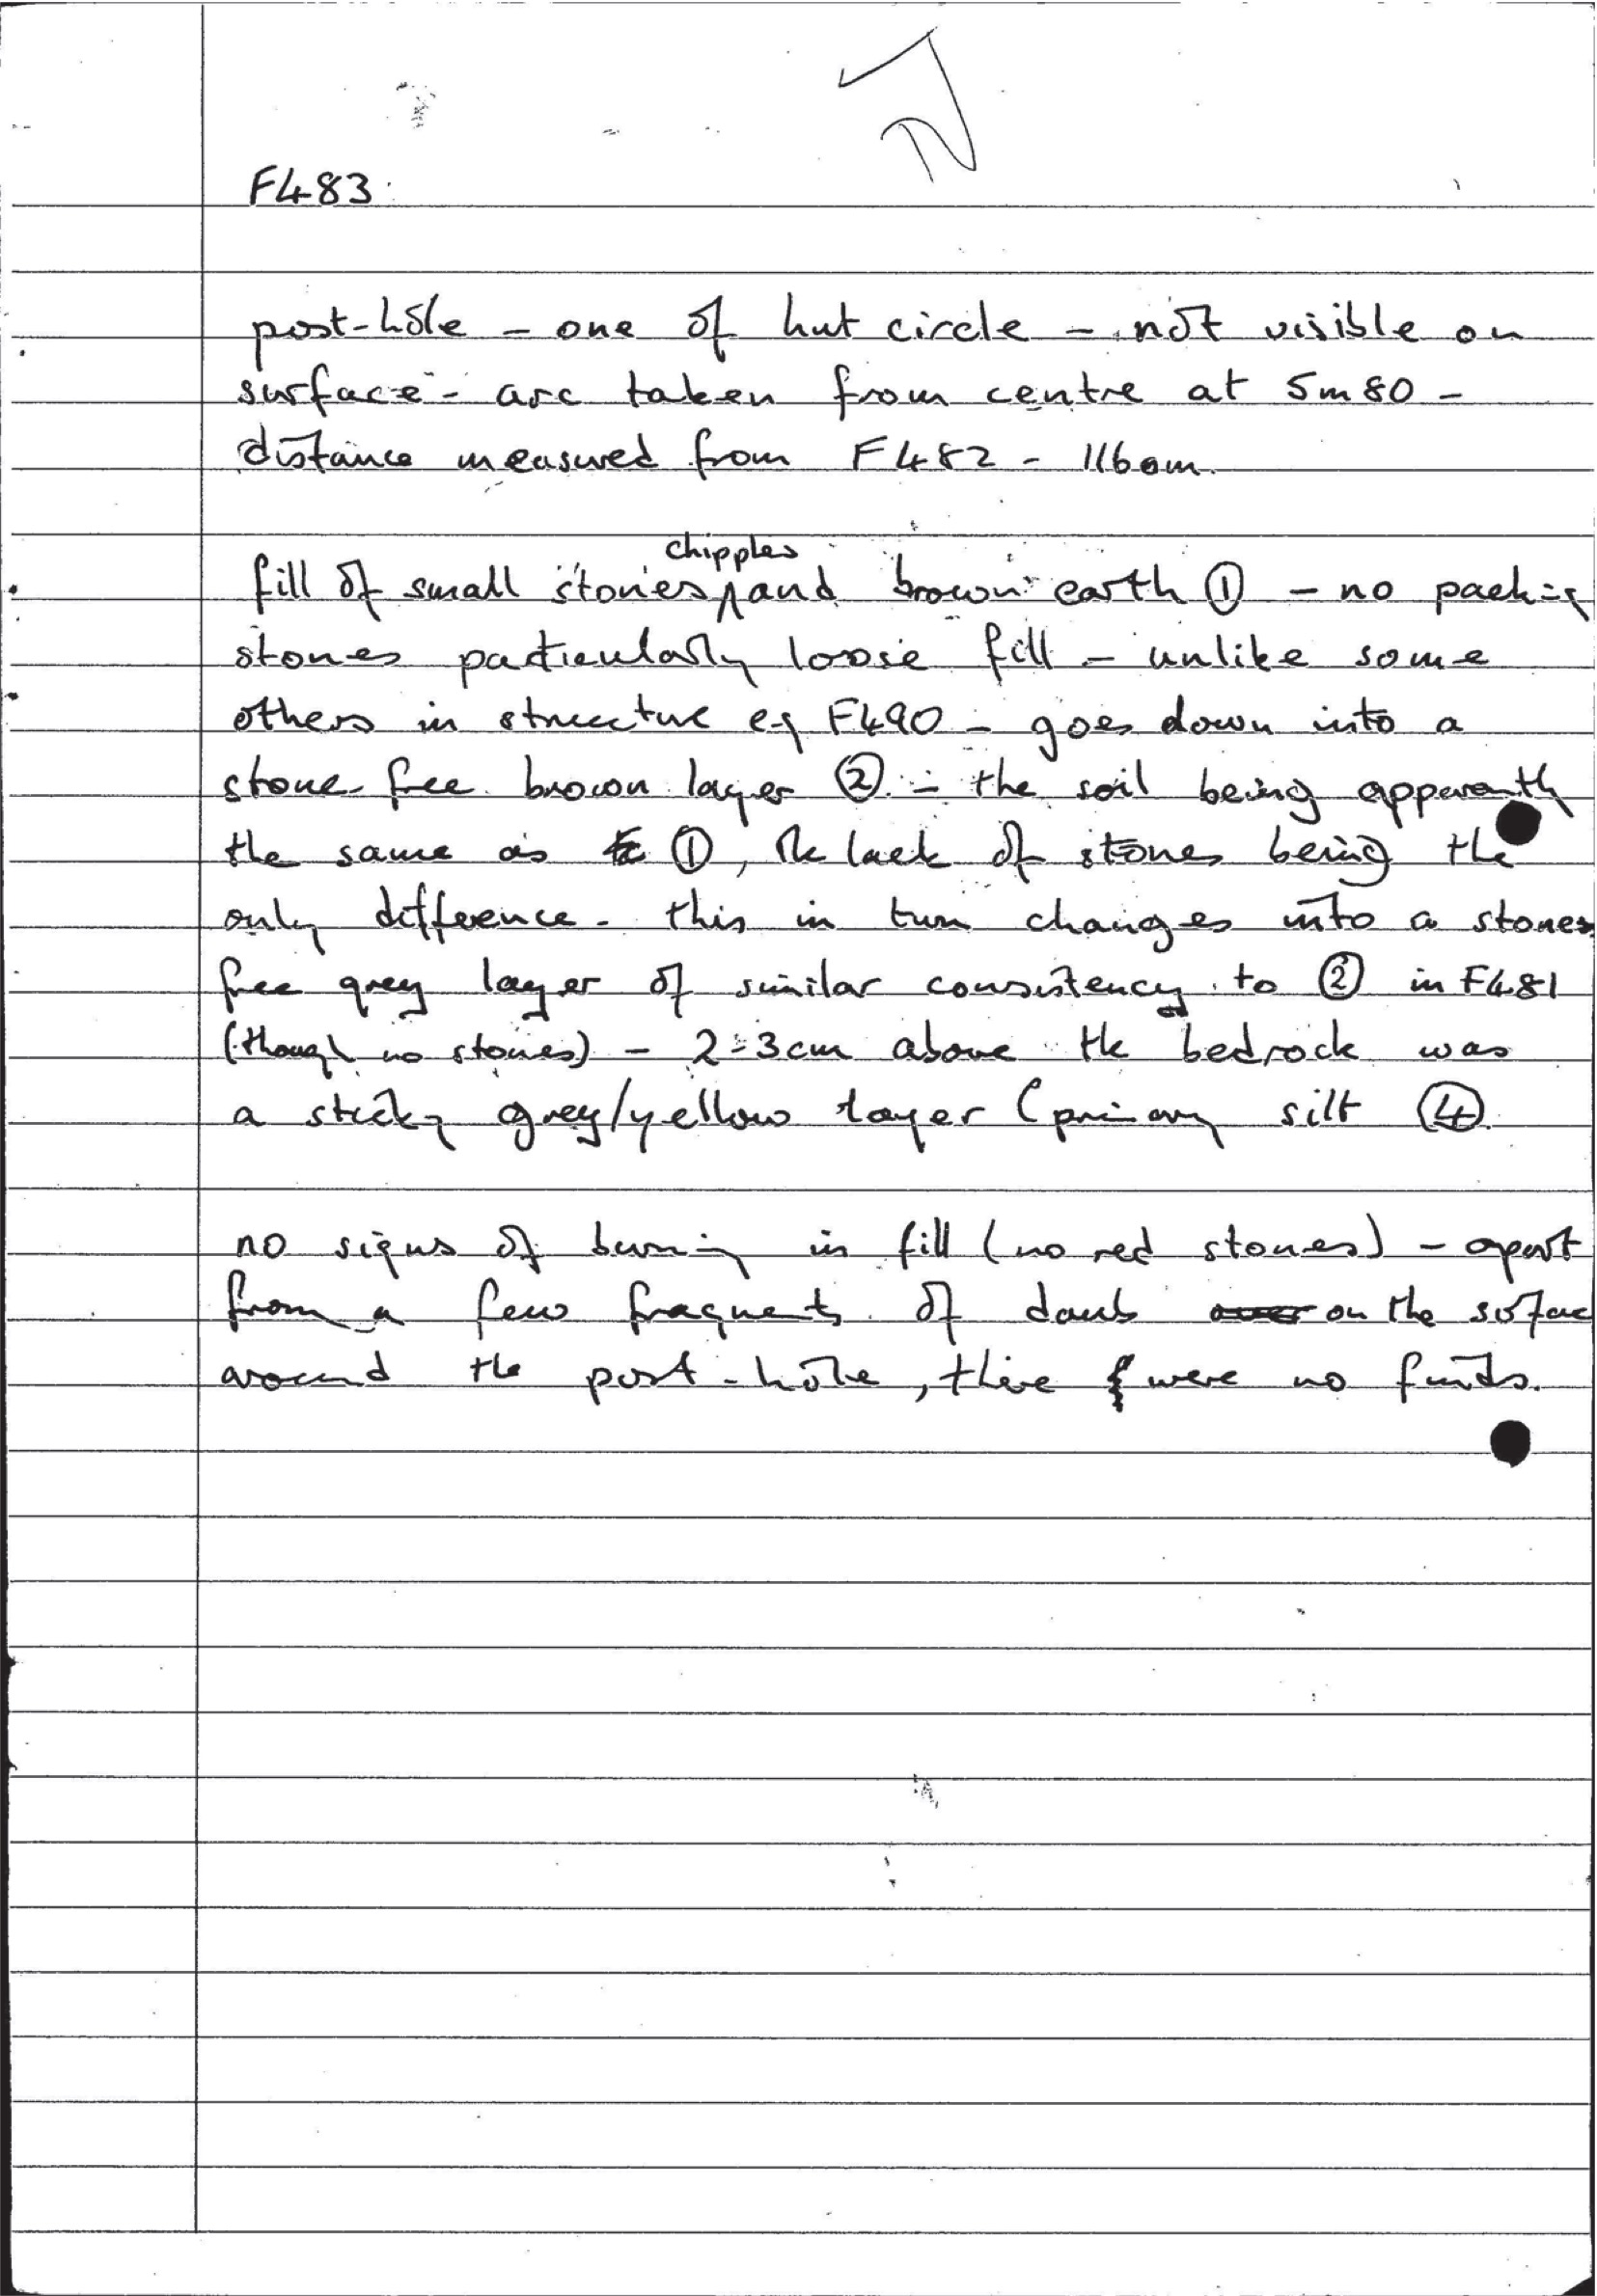 F483
post-hole - one of hut circle - not visible on
surface - arc taken from centre at 5m80 -
distance measured from F482 - 116cm.
chipples
fill of small stones, and brown earth ① - no packing
stones particularly loose fill - unlike some
others in structure eg F490 - goes down into a
stone-free brown layer ② - the soil being apparently
the same as ①, the lack of stones being the
only difference - this in turn changes into a stones
free grey layer of similar consistency to ② in F481
(though no stones) - 2-3cm above the bedrock was
a sticky grey/yellow layer (primary silt ④.
no signs of burning in fill (no red stones) - apart
from a few fragments of daub on the surface
around the post-hole, there were no finds.